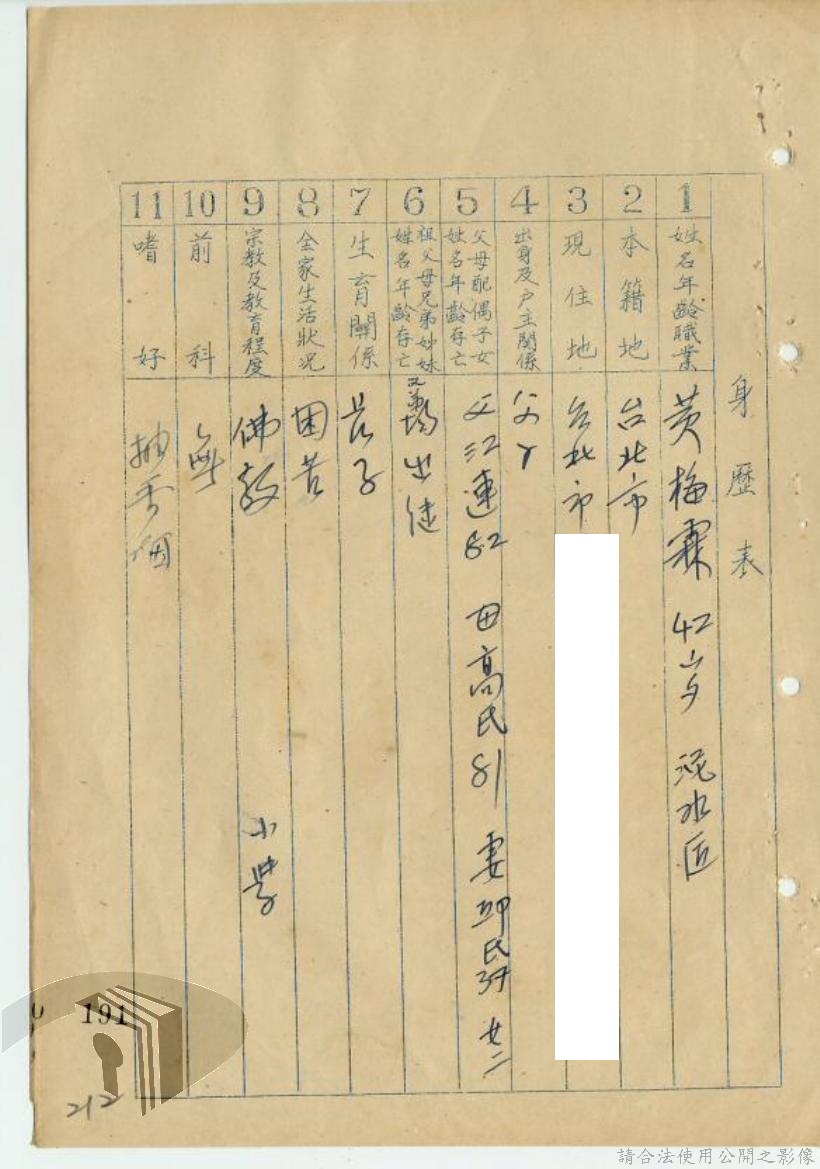 身歷表
1 姓名年齡職業 黃梅霖 42歲 泥水匠
2 本籍地 台北市
3 現住地 台北市
4 出身及戶主關係 父
5 父母配偶子女姓名年齡存亡 父 連 82 高氏 81 妻邱氏 34 女二
6 祖父母兄弟姊妹姓名年齡存亡
7 生育關係 長子
8 全家生活狀況 困苦
9 宗教及教育程度 佛教 小學
10 前科 無
11 嗜好 抽香烟
191
212
請合法使用公開之影像